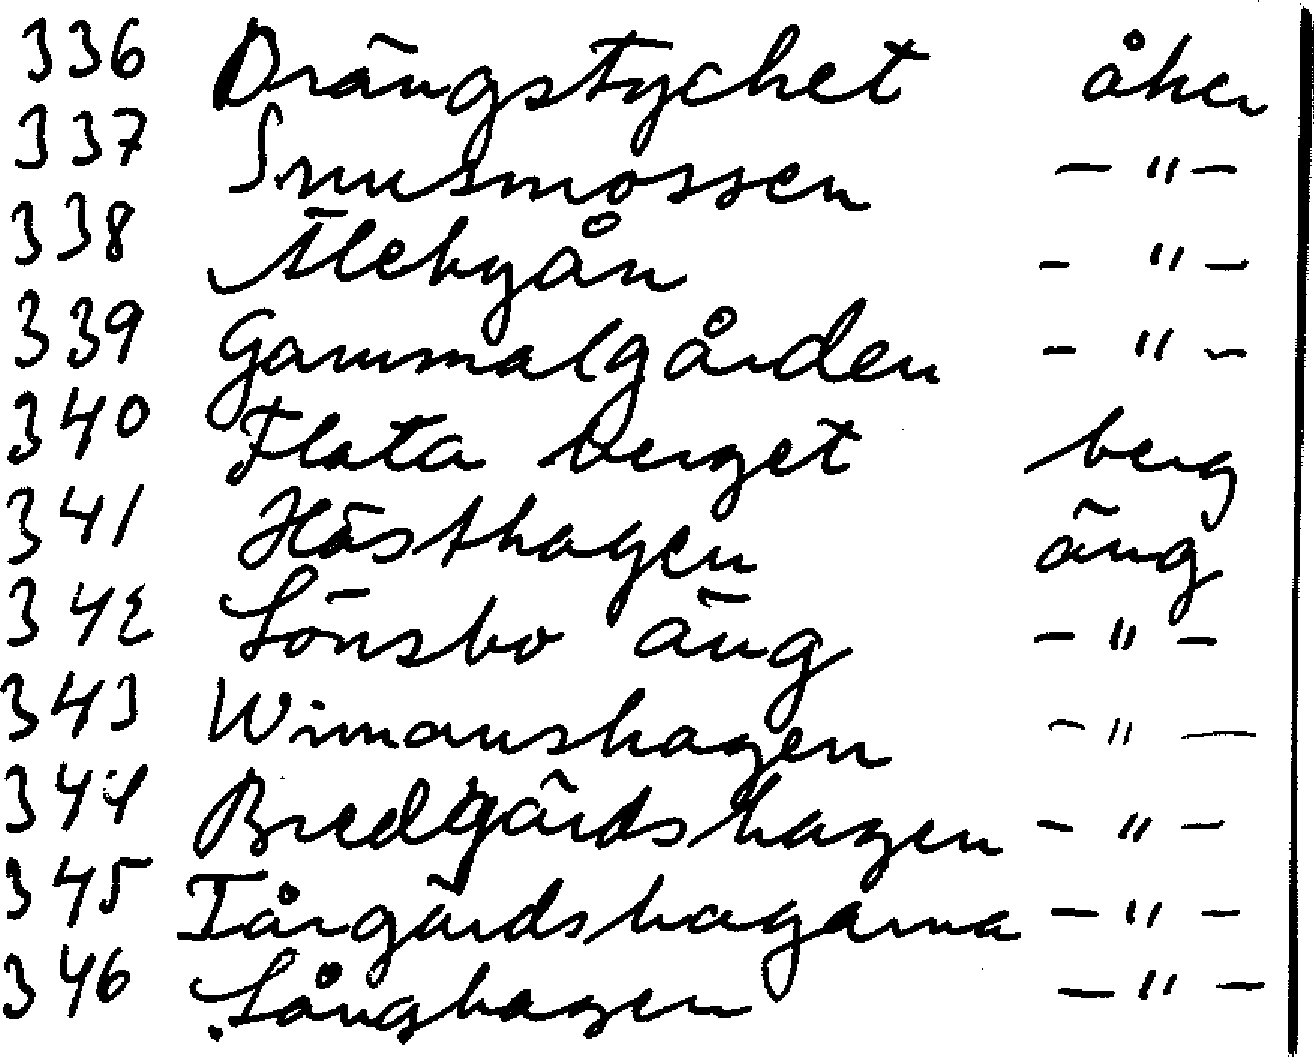 336 Drängstychet åker
337 Snusmossen - " -
338 Älebyån - " -
339 Gammalgården - " -
340 Flata berget berg
341 Hästhagen äng
342 Lönsbo äng - " -
343 Wimanshagen - " -
344 Bredgärdshagen - " -
345 Tårgärdshagarna - " -
346 Långhagen - " -